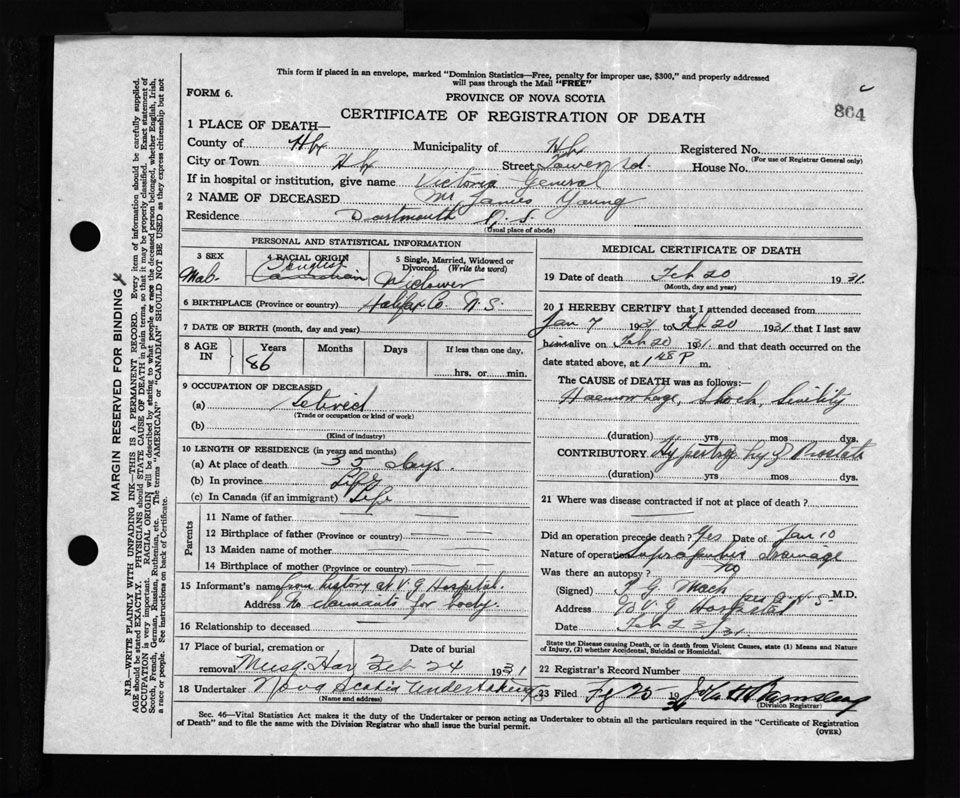 This form if placed in an envelope, marked "Dominion Statistics—Free, penalty for improper use, $300," and properly addressed
will pass through the Mail "FREE"
FORM 6.
PROVINCE OF NOVA SCOTIA
864
CERTIFICATE OF REGISTRATION OF DEATH
1 PLACE OF DEATH—
County of Hfx Municipality of Hfx Registered No.
(For use of Registrar General only)
City or Town Hfx Street Tower Rd. House No.
If in hospital or institution, give name Victoria General
2 NAME OF DECEASED Mr James Young
Residence Dartmouth N. S.
(Usual place of abode)
PERSONAL AND STATISTICAL INFORMATION
3 SEX
4 RACIAL ORIGIN
5 Single, Married, Widowed or Divorced. (Write the word)
Male. English Canadian Widower
6 BIRTHPLACE (Province or country) Halifax Co. N. S.
7 DATE OF BIRTH (month, day and year)
8 AGE IN
Years Months Days If less than one day,
86 hrs. or min.
9 OCCUPATION OF DECEASED
(a) retired
(Trade or occupation or kind of work)
(b)
(Kind of industry)
10 LENGTH OF RESIDENCE (in years and months)
(a) At place of death 35 days.
(b) In province Life
(c) In Canada (if an immigrant) Life
Parents
11 Name of father
12 Birthplace of father (Province or country)
13 Maiden name of mother
14 Birthplace of mother (Province or country)
15 Informant's name from history at V. G Hospital.
Address No claimants for body.
16 Relationship to deceased
17 Place of burial, cremation or removal Date of burial
Musq. Har Feb 24 1931
18 Undertaker Nova Scotia Undertaking Co
(Name and address)
MEDICAL CERTIFICATE OF DEATH
19 Date of death Feb 20 1931
(Month, day and year)
20 I HEREBY CERTIFY that I attended deceased from
Jan 7 1931 to Feb 20 1931 that I last saw
him alive on Feb 20 1931. and that death occurred on the
date stated above, at 1 48 P m.
The CAUSE OF DEATH was as follows:—
Haemorrhage, Shock, Senility
(duration) yrs mos dys.
CONTRIBUTORY Hypertrophy of Prostate
(duration) yrs mos dys.
21 Where was disease contracted if not at place of death?
Did an operation precede death? Yes Date of Jan 10
Nature of operation Suprapubic drainage
Was there an autopsy? no
(Signed) M.D.
Address V. G Hospital
Date Feb 23/31
State the Disease causing Death, or in death from Violent Causes, state (1) Means and Nature
of Injury, (2) whether Accidental, Suicidal or Homicidal.
22 Registrar's Record Number
23 Filed 19
(Division Registrar)
Sec. 46—Vital Statistics Act makes it the duty of the Undertaker or person acting as Undertaker to obtain all the particulars required in the "Certificate of Registration
of Death" and to file the same with the Division Registrar who shall issue the burial permit.
(OVER)
MARGIN RESERVED FOR BINDING
N.B.—WRITE PLAINLY WITH UNFADING INK—THIS IS A PERMANENT RECORD. Every item of information should be carefully supplied.
AGE should be stated EXACTLY. PHYSICIANS should STATE CAUSE OF DEATH in plain terms, so that it may be properly classified. Exact statement of
OCCUPATION is very important. RACIAL ORIGIN will be described by stating to what people or race the deceased person belonged, whether English, Irish,
Scotch, French, German, Russian, Ruthenian, etc. The terms "AMERICAN" or "CANADIAN" SHOULD NOT BE USED as they express citizenship but not
a race or people. See instructions on back of Certificate.